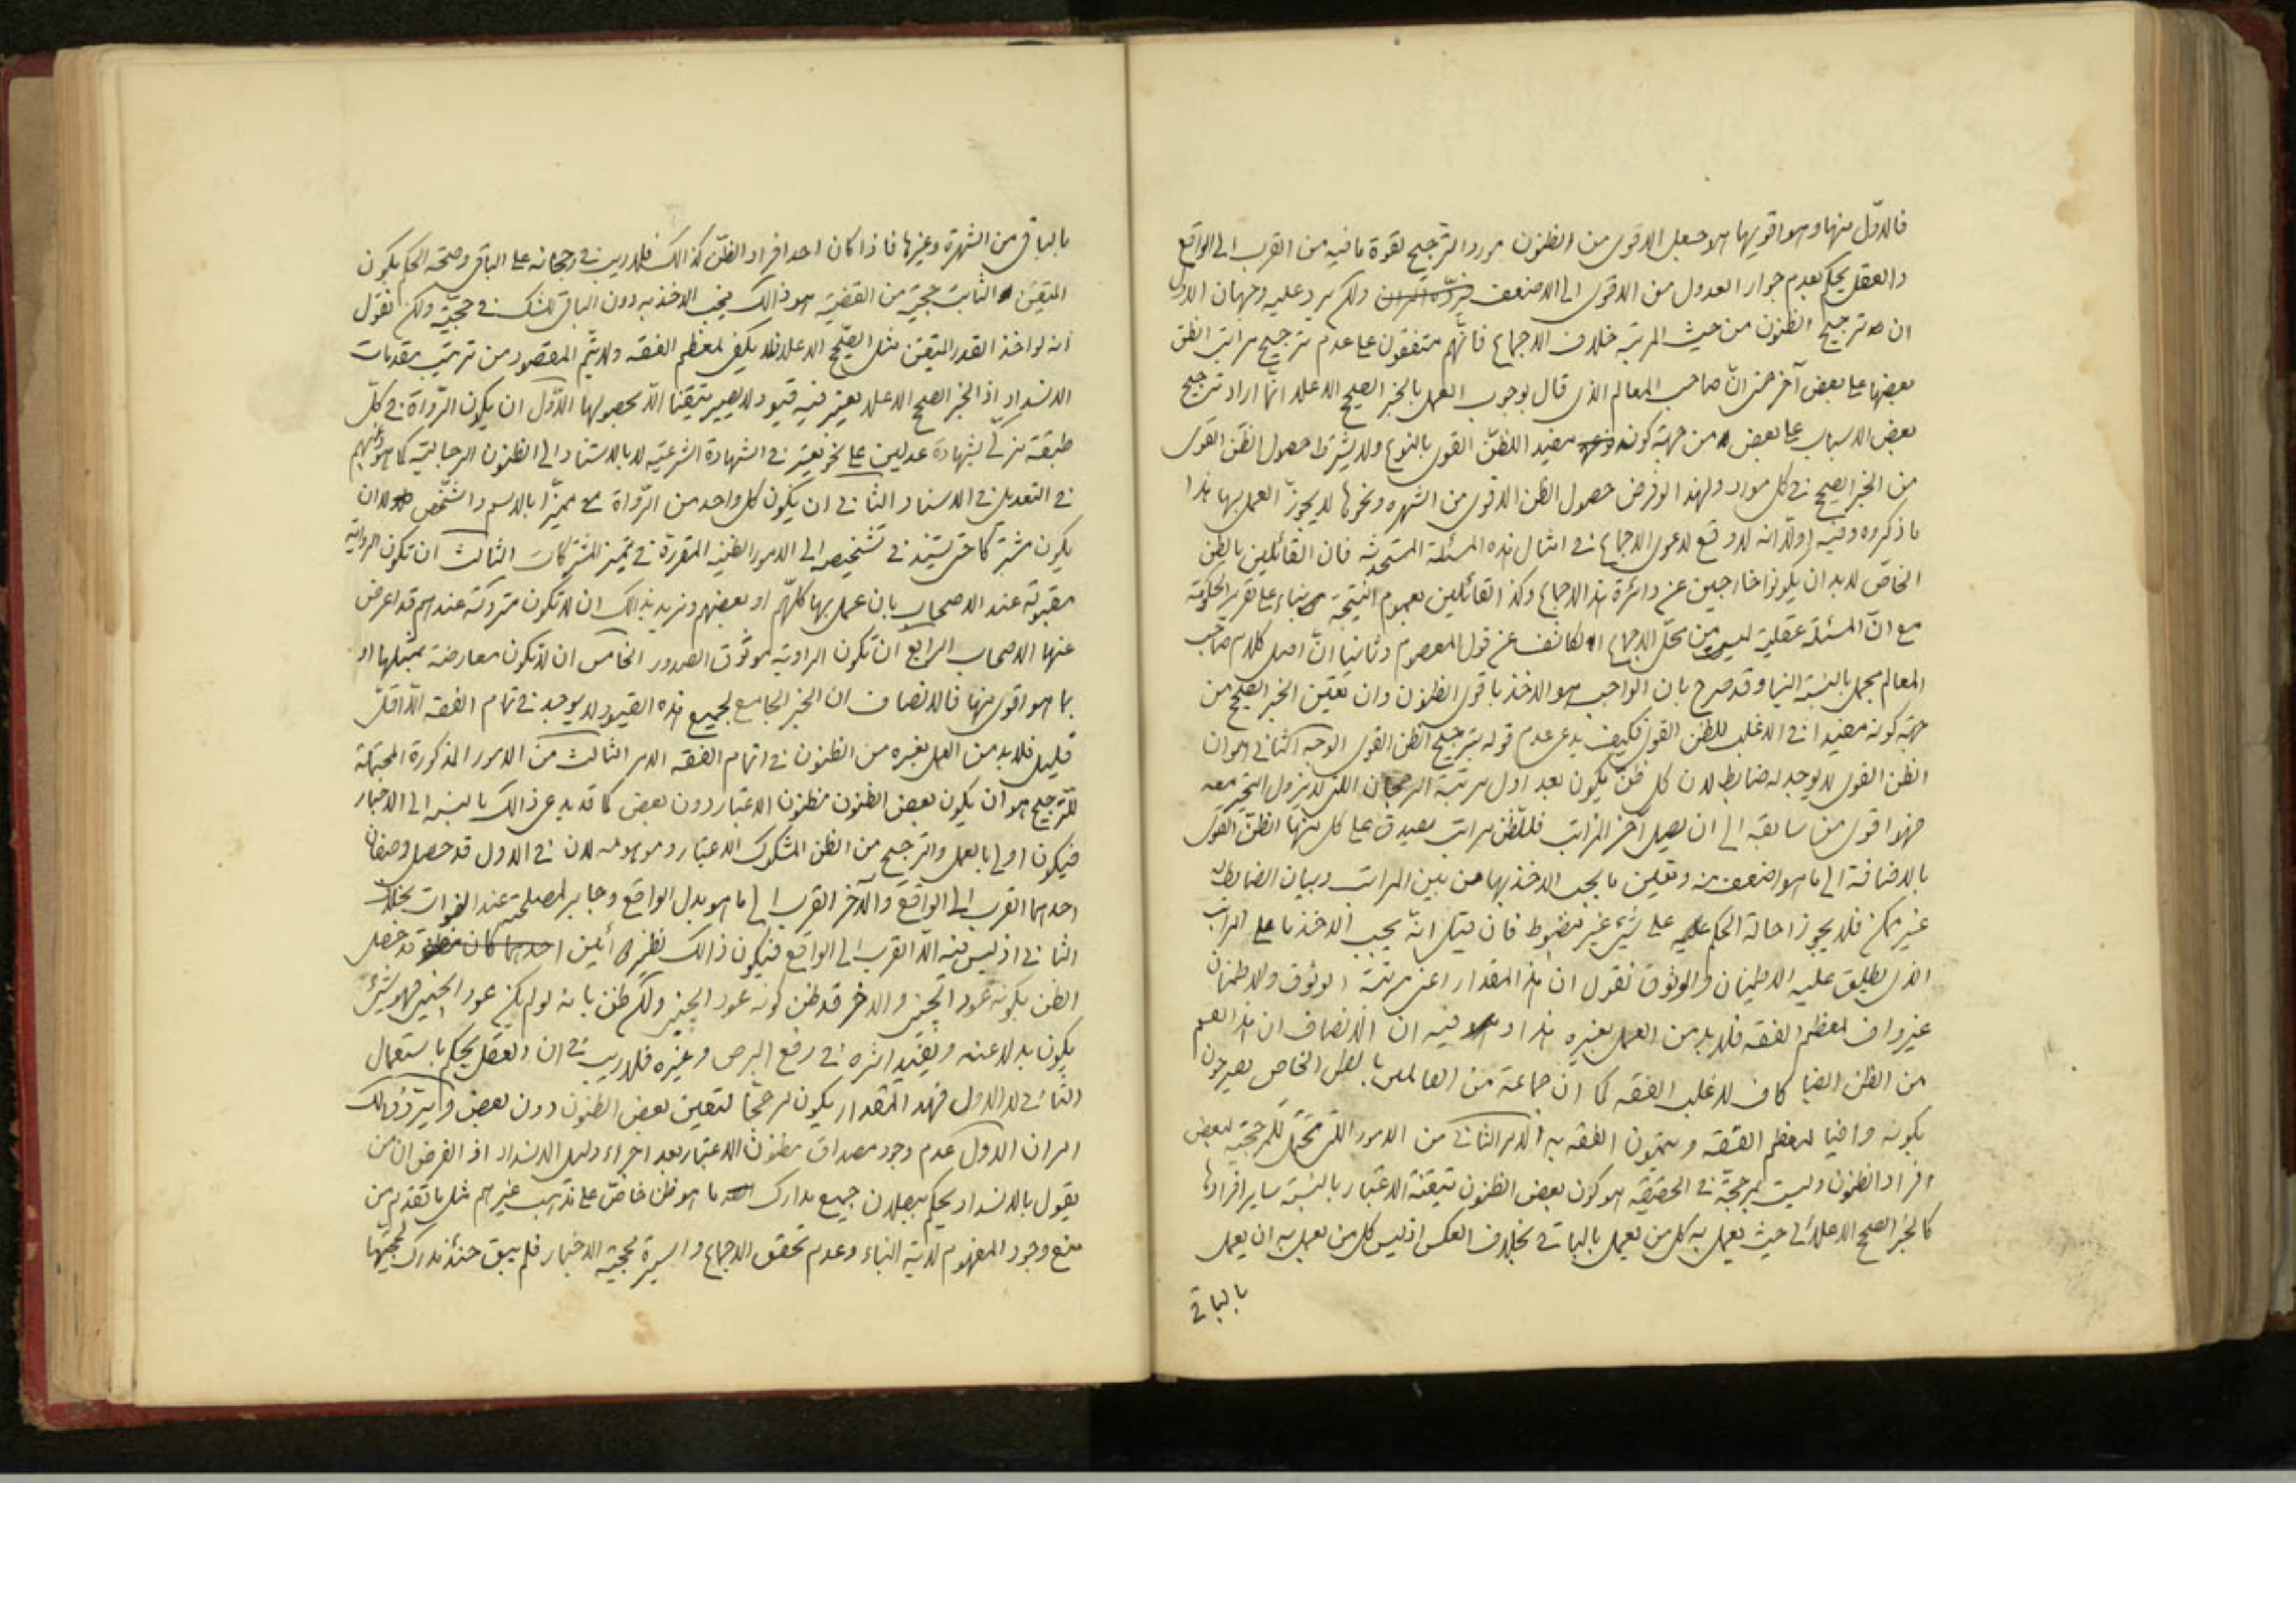 فالاوّل منها وهو اقويها هو جعل الاقوى من الظنون مورد الترجيح لقوة ما فيه من القرب الى الواقع
والعقل يحكم بعدم جواز العدول من الاقوى الى الاضعف ولكم يرد عليه وجهان الاول
ان ترجيح الظنون من حيث المرتبة خلاف الاجماع فانّهم متفقون على عدم ترجيح مراتب الظن
بعضها على بعض آخر حتى انّ صاحب المعالم الذى قال بوجوب العمل بالخبر الصحيح الاعلا انّما اراد ترجيح
بعض الاسباب على بعض من جهة كونه مفيد اللظنّ القوى بالنوع ولا يشترط حصول الظن القوى
من الخبر الصحيح فى كل موارد ولهذا لو فرض حصول الظن الاقوى من الشهره ونحوها لا يجوز العمل بها هذا
ما ذكروه وفيه اولا انه لا وقع لدعوى الاجماع فى امثال هذه المسئلة المستحدثه فان القائلين بالظن
الخاصّ لا بد ان يكونوا خارجين عن دائرة هذا الاجماع وكذا القائلين بعموم النتيجة بناء على تقرير الحكومة
مع انّ المسئلة عقلية ليس من محلّ الاجماع الكاشف عن قول المعصوم وثانيا انّ اصل كلام صاحب
المعالم مجمل بالنسبة الينا وقد صرح بان الواجب هو الاخذ باقوى الظنون وان تعيّن الخبر الصحيح من
جهة كونه مفيدا فى الاغلب للظن القوى فكيف يدعى عدم قوله بترجيح الظن القوى الوجه الثانى هو ان
الظن القوى لا يوجد له ضابط لان كل ظنّ يكون بعد اول مرتبة الرجحان اللتى لا يزول التحير معه
فهو اقوى من سابقه الى ان يصل آخر المراتب فللظن مراتب يصدق على كل منها الظن القوى
بالاضافة الى ما هو اضعف منه وتعيين ما يجب الاخذ بها من بين المراتب وبيان الضابط له
غير ممكن فلا يجوز احالة الحكم على شئ غير مضبوط فان قيل انّه يجب الاخذ باعلى المراتب
الذى يطلق عليه الاطمينان والوثوق نقول ان هذا المقدار اعنى مرتبة الوثوق والاطمنان
غير واف لمعظم الفقه فلا بد من العمل بغيره هذا وفيه ان الانصاف ان هذا القسم
من الظن ايضا كاف لاغلب الفقه كما ان جماعة من العاملين بالظن الخاص يصرحون
بكونه وافيا لمعظم الفقه ويتمون الفقه به الامر الثانى من الامور اللتى تحتمل للمرجحية لبعض
افراد الظنون وليست بمرجحة فى الحقيقه هو كون بعض الظنون متيقنة الاعتبار بالنسبة ساير افرادها
كالخبر الصحيح الاعلائى حيث يعمل به كل من يعمل بالباقى بخلاف العكس اذ ليس كل من يعمل به ان يعمل
بالباقى
بالباقى من الشهرة وغيرها فاذا كان احد افراد الظنّ كذالك فلا ريب فى رجحانه على الباقى وصحة الحكم بكون
المتيقن الثابت حجيّة من القضية هو ذالك فيجب الاخذ به دون الباقى للشك فى حجيّته ولكم نقول
انه لو اخذ القدر المتيقن مثل الصّحيح الاعلا فلا يكفى لمعظم الفقه ولا يتمّ المقصود من ترتيب مقدمات
الانسداد اذ الخبر الصحيح الاعلا يعتبر فيه قيود ولا يصير متيقنا الّا بحصولها الاوّل ان يكون الرّواة فى كلّ
طبقة مزكّى بشهادة عدلين على نحو يعتبر فى الشهادة الشرعيّة لا بالاستناد الى الظنون الرجالية كما هو
فى التعديل فى الاسناد الثانى ان يكون كل واحد من الرّواة مميّزا بالاسم والشّخص لا ان
يكون مشتركا حتى يستند فى تشخيصه الى الامور الظنية المقررة فى تميز المشتركات الثالث ان تكون الرواية
مقبولة عند الاصحاب بان عمل بها كلّهم او بعضهم ونريد بذالك ان لا تكون متروكة عندهم قد اعرض
عنها الاصحاب الرابع ان تكون الراوية موثوق الصدور الخامس ان لا تكون معارضة بمثلها او
بما هو اقوى منها فالانصاف ان الخبر الجامع لجميع هذه القيود لا يوجد فى تمام الفقه الّا اقلّ
قليل فلا بد من العمل بغيره من الظنون فى اتمام الفقه الامر الثالث من الامور المذكورة المحتملة
للترجيح هو ان يكون بعض الظنون مظنون الاعتبار دون بعض كما قد يدعى ذالك بالنسبة الى الاخبار
فيكون اولى بالعمل والترجيح من الظن المشكوك الاعتبار وموهومه لان فى الاول قد حصل وصفان
احدهما القرب الى الواقع والآخر القرب الى ما هو بدل الواقع وجابر لمصلحته عند الفوات بخلاف
الثانى اذ ليس فيه الّا القرب الى الواقع فيكون ذالك نظير قد حصل
الظن بكونه عود الجنبر والاخر قد ظن كونه عود الجنبر ولكم ظن بانه لو لم يكن عود الجنبر فهو شئ
يكون بدلا عنه ويفيد اثره فى رفع البرص وغيره فلا ريب فى ان العقل يحكم باستعمال
الثانى لا الاول فهذا المقدار يكون مرجحا لتعيين بعض الظنون دون بعض
امران الاول عدم وجود مصداق مظنون الاعتبار بعد اجراء دليل الانسداد اذ الفرض ان من
يقول بالانسداد يحكم ببطلان جميع مدارك ما هو ظن خاصّ على مذهب غيرهم مثل ما تقدم من
منع وجود المفهوم لاية النباء وعدم تحقق الاجماع والسيرة لحجية الاخبار فلم يبق حنئذ مدرك لحجيتها